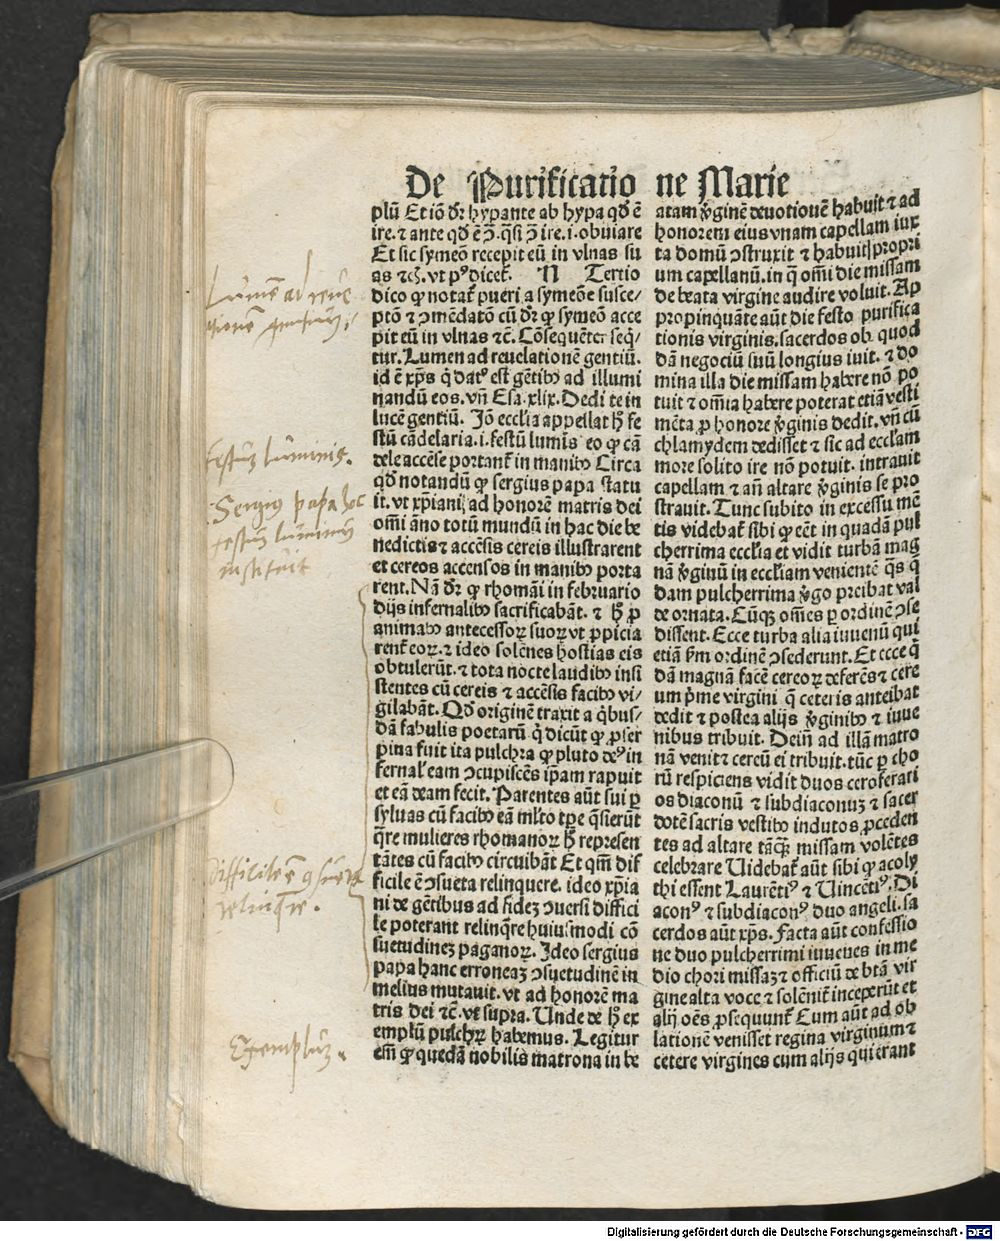 De Purificatione Marie
plū Et iō dr̄ hypante ab hypa qd̄ ē
ire. ⁊ ante qd̄ ē ꝯ̄. q̄si ꝯ̄ ire. i. obuiare
Et sic symeō recepit eū in vlnas su
as ⁊cꝫ. vt pꝰ dicet̄. N Tertio
dico ꝙ notat̄ pueri a symeōe susce⸗
ptō ⁊ ꝯmēdatō cū dr̄ ꝙ symeō acce
pit eū in vlnas ⁊c̄. Cōsequēter seq̄⸗
tur. Lumen ad reuelationē gentiū.
id ē xp̄s q̇ datꝰ est gētibꝰ ad illumi
nandū eos. vn̄ Esa. xlix. Dedi te in
lucē gentiū. Iō eccl̄ia appellat h̄ fe
stū cādelaria. i. festū lumīs eo ꝙ cā
dele accēse portant̄ in manibꝰ Circa
qd̄ notandū ꝙ sergius papa statu
it. vt xp̄iani ad honorē matris dei
om̄i āno totū mundū in hac die be
nedictis ⁊ accēsis cereis illustrarent
et cereos accensos in manibꝰ porta
rent. Nā dr̄ ꝙ rhomāi in februario
dijs infernalibꝰ sacrificabāt. ⁊ h̄ ꝓ
animabꝰ antecessoꝝ suoꝝ vt ꝓpicia
rent̄ eoꝝ. ⁊ ideo solēnes hostias eis
obtulerūt. ⁊ tota nocte laudibꝰ insi
stentes cū cereis ⁊ accēsis facibꝰ vi⸗
gilabāt. Qd̄ originē traxit a q̇bus⸗
dā fabulis poetarū q̇ dicūt ꝙ ꝓser
pina fuit ita pulchra ꝙ pluto deꝰ in
fernal' eam ꝯcupiscēs ip̄am rapuit
et eā deam fecit. Parentes aūt sui ꝑ
syluas cū facibꝰ eā ml̄to tp̄e q̄sierūt
q̄re mulieres rhomanoꝝ h̄ represen
tātes cū facibꝰ circuibāt Et qm̄ dif
ficile ē ꝯsueta relinquere. ideo xp̄ia
ni de gētibus ad fidez ꝯuersi diffici
le poterant relinq̄re huiusmodi cō
suetudinez paganoꝝ. Ideo sergius
papa hanc erroneaz ꝯsuetudinē in
melius mutauit. vt ad honorē ma
tris dei ⁊c̄. vt supra. Unde de h̄ ex
emplū pulchꝝ habemus. Legitur
em̄ ꝙ quedā nobilis matrona in be
atam v̇ginē deuotionē habuit ⁊ ad
honorem eius vnam capellam iux
ta domū ꝯstruxit ⁊ habuit propri
um capellanū. in q̄ om̄i die missam
de beata virgine audire voluit. Ap
propinquāte aūt die festo purifica
tionis virginis. sacerdos ob quod
dā negociū suū longius iuit. ⁊ do
mina illa die missam habere nō po
tuit ⁊ om̄ia habere poterat etiā vesti
mēta ꝓ honore v̇ginis dedit. vn̄ cū
chlamydem dedisset ⁊ sic ad eccl̄am
more solito ire nō potuit. intrauit
capellam ⁊ añ altare v̇ginis se pro
strauit. Tunc subito in excessu mē
tis videbat̄ sibi ꝙ eēt in quadā pul
cherrima eccl̄ia et vidit turbā mag
nā v̇ginū in eccl̄iam veniente q̄s q̄
dam pulcherrima v̇go preibat val
de ornata. Cūqꝫ om̄es ꝑ ordinē ꝯse
dissent. Ecce turba alia iuuenū qui
etiā ẜm ordinē ꝯsederunt. Et ecce q̇
dā magnā facē cereoꝝ deferēs ⁊ cere
um prīme virgini q̄ ceteris anteibat
dedit ⁊ postea alijs v̇ginibꝰ ⁊ iuue
nibus tribuit. Dein̄ ad illā matro
nā venit ⁊ cereū ei tribuit. tūc ꝑ cho
rū respiciens vidit duos ceroferari
os diaconū ⁊ subdiaconuz ⁊ sacer
dotē sacris vestibꝰ indutos ꝓceden
tes ad altare tāqꝫ missam volētes
celebrare Uidebat̄ aūt sibi ꝙ acoly
thi essent Laurētiꝰ ⁊ Uincētiꝰ. Di
aconꝰ ⁊ subdiaconꝰ duo angeli. sa
cerdos aūt xp̄s. Facta aūt confessio
ne duo pulcherrimi iuuenes in me
dio chori missaz ⁊ officiū de btā vir
gine alta voce ⁊ solēnit̄ inceperūt et
alij oēs ꝓsequunt̄ Cum aūt ad ob
lationē venisset regina virginum ⁊
cetere virgines cum alijs qui erant
Lumē ad reue
tionē gentium
festuꝫ luminis.
Sergius papa hoc
festuꝫ luminum
instituit
Difficile ē ꝯsueta
relinq̄re.
Exempluꝫ.
Digitalisierung gefördert durch die Deutsche Forschungsgemeinschaft - DFG